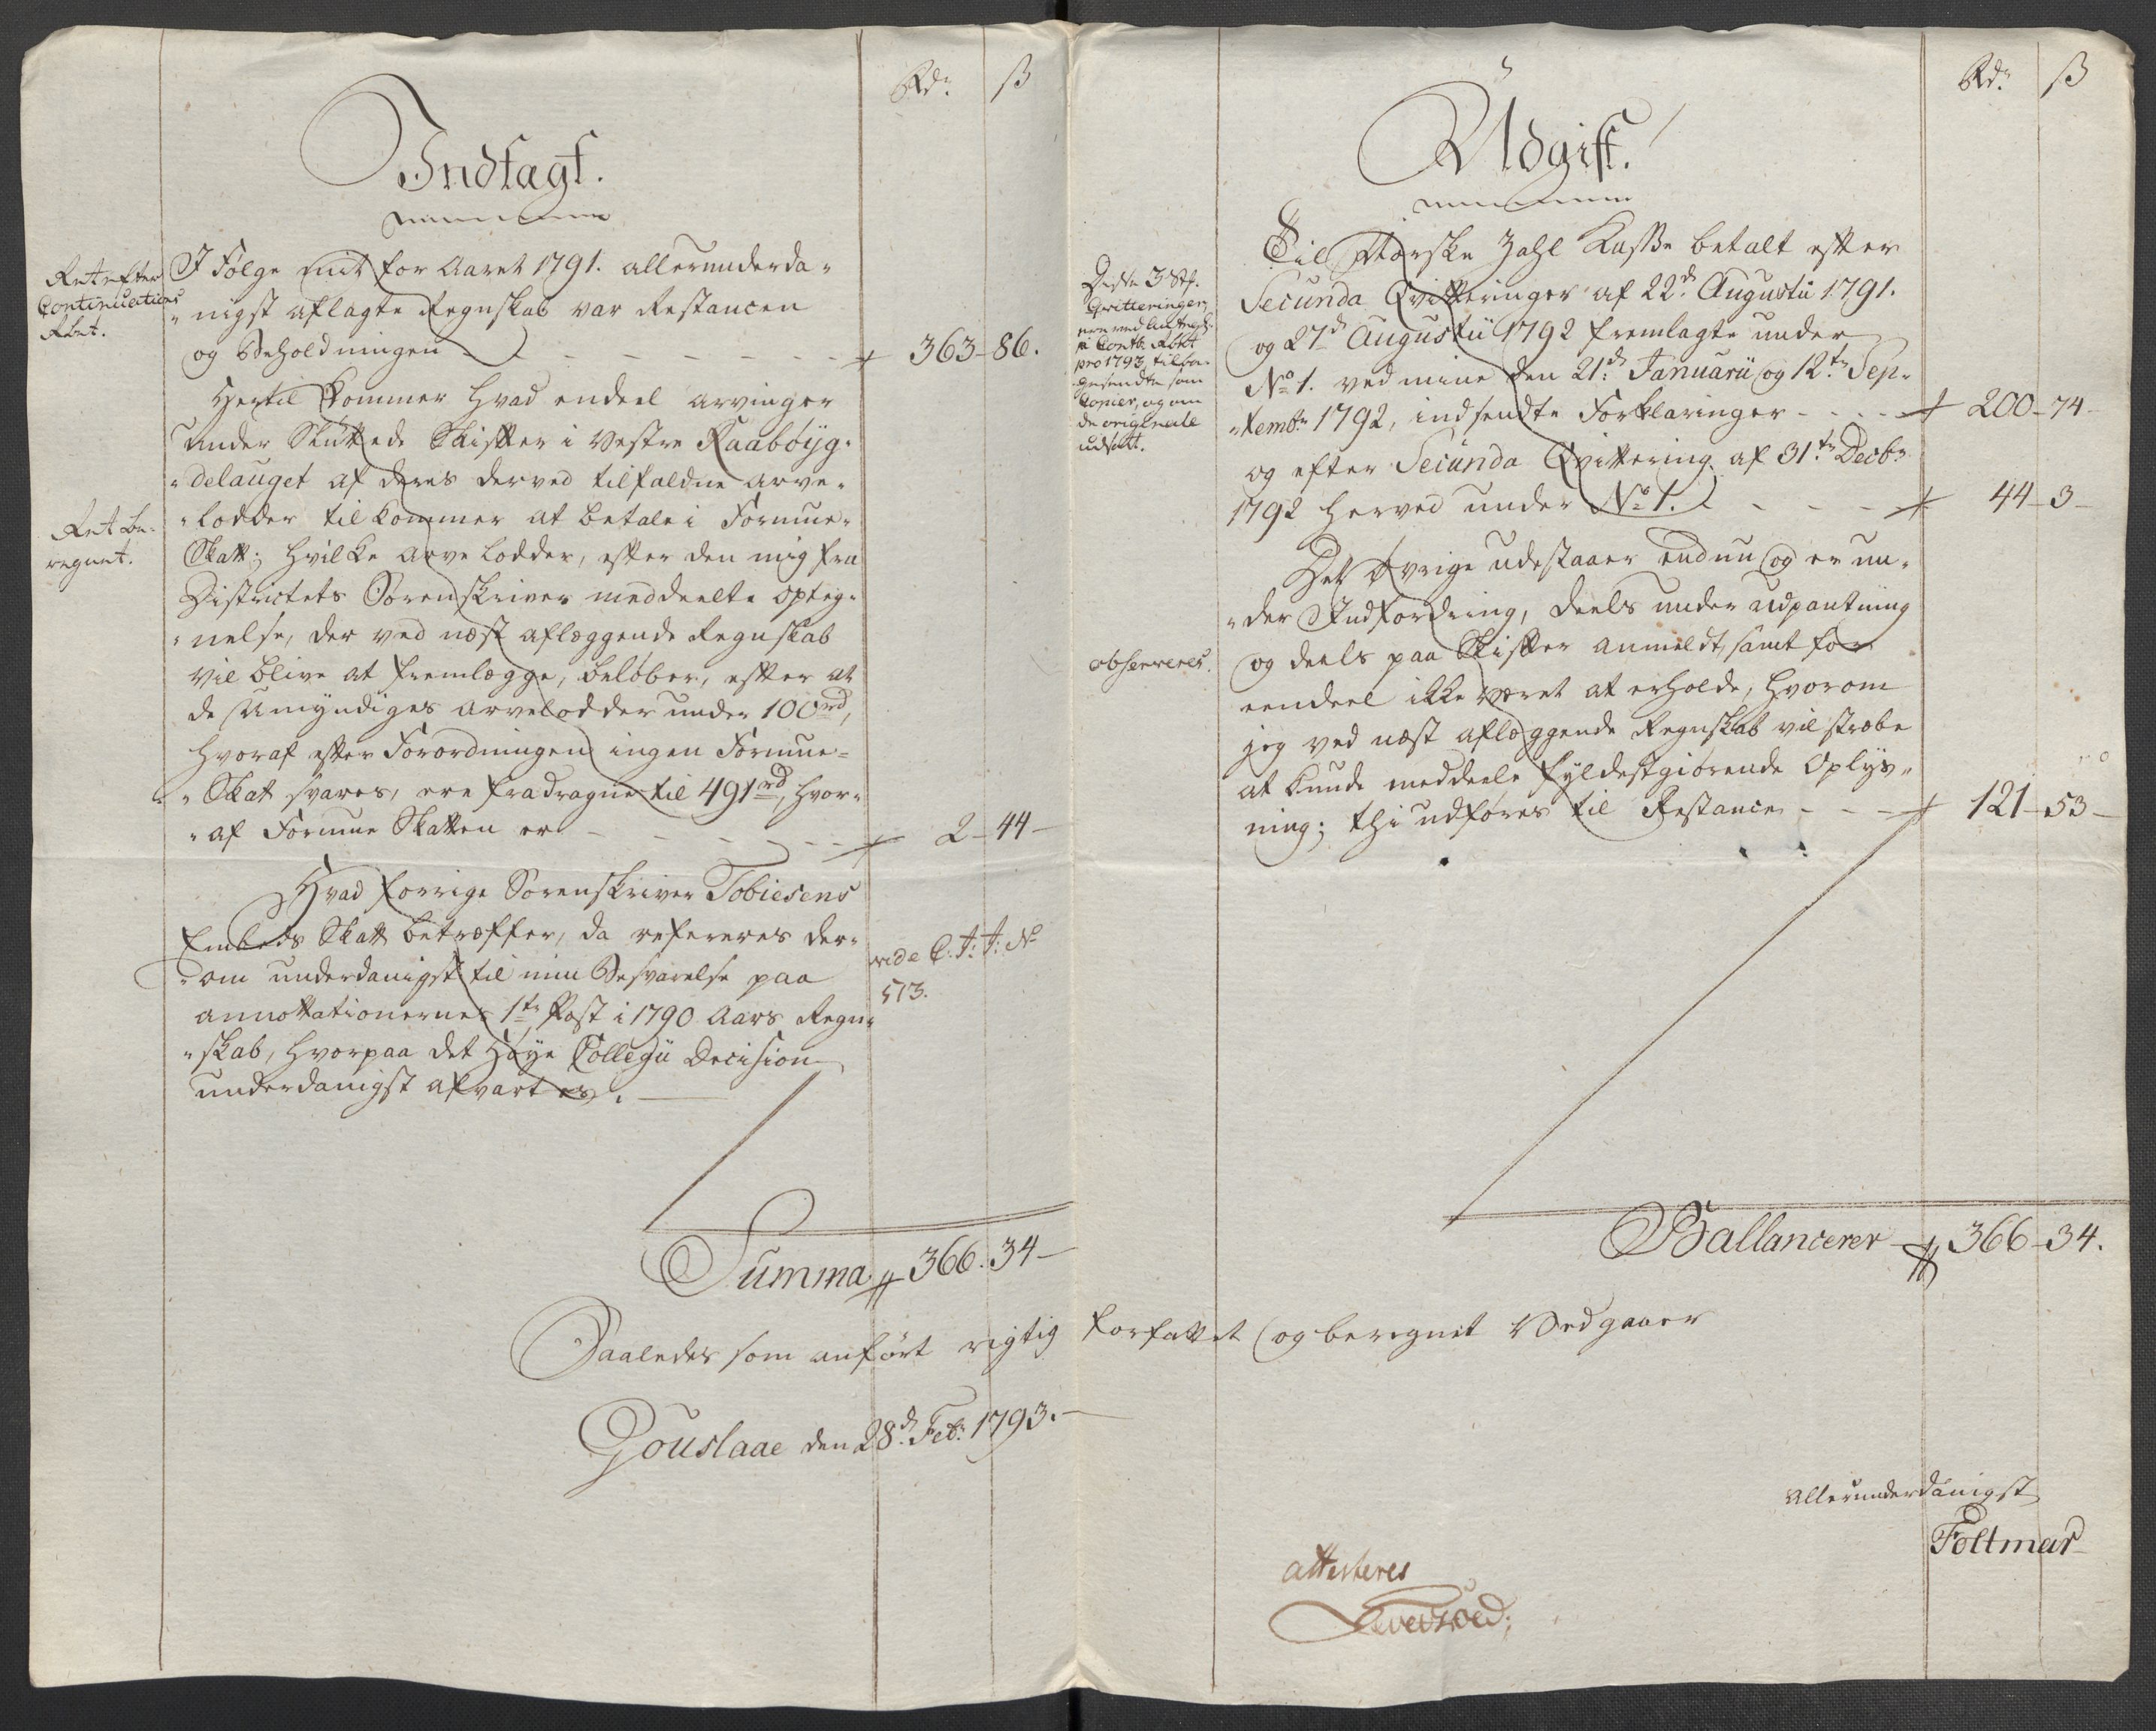 Rd. ß
Indtægt.
Ret efter
Continuations
Rbet.
I Følge mit for Aaret 1791. allerunderda-
nigst aflagte Regnskab var Restancen
og Beholdningen - - - 363-86.
Hertil kommer hvad endeel arvinger
under Sluttede Skifter i Vestre Raabøyg-
delauget af deres derved tilfaldne arve-
lodder tilkommer at betale i Formue-
Ret be-
regnet.
Skatt; hvilke arve lodder, efter den mig fra
Districtets Sorenskriver meddeelte opteg-
nelse, der ved næst aflæggende Regnskab
vil blive at fremlægge, beløber, efter at
de Umyndiges arvelodder under 100rd,
hvoraf efter Forordningen ingen Formue-
Skat svares, ere fradragne til 491rd, hvor-
af Formue Skatten er - - - 2-44-
Hvad forrige Sorenskriver Tobiesens
Embeds Skatt betræffer, da refereres der-
om underdanigst til min Besvarelse paa
vide C. J: J: No
573.
annottationernes 1te Post i 1790 Aars Regn-
skab, hvorpaa det Høye Collegii Decision
underdanigst afvartes.
Summa 366.34-
Rd. ß
Udgift.
Til Norske Zahl Kasse betalt efter
Disse 3 Stk.
Qvitteringer,
ere ved
pro 1793 tilba-
gesendte som
Copier, og om
de originale
udsatt.
Secunda Qvitteringer af 22d Augustii 1791.
og 27d Augustii 1792 fremlagte under
No 1. ved mine den 21d Januarii og 12te Sep-
tembr 1792, indsendte Forklaringer - - - 200-74-
og efter Secunda Qvittering af 31te Decbr
1792 herved under No 1. - - - 44-3-
Det øvrige udestaaer endnu og er un-
der Indfordring, deels under udpantning
observeres.
og deels paa Skifter anmeldt, samt for
eendeel ikke været at erholde, hvorom
jeg ved næst aflæggende Regnskab vil stræbe
at kunde meddeele fyldestgiørende Oplys-
ning; thi udføres til Restance - - - 121-53-
Ballancerer 366-34.
Saaledes som anført rigtig forfattet og beregnet Vedgaaer
Gouslaae den 28d Feb: 1793.
Allerunderdanigst
Foltmar
attesteres